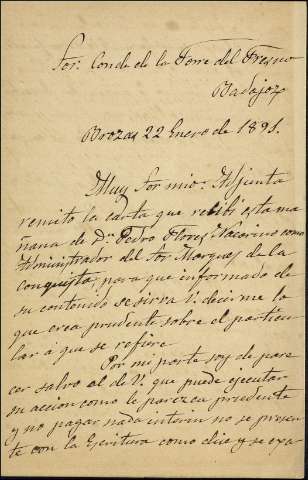 Sor. Conde de la Torre del Fresno
Badajoz
Brozas 22 Enero de 1891.
Muy Sor mio: Adjunta
remito la carta que recibí esta ma
ñana de Dn Pedro Flores como
Administrador del Sor Marques de la
Conquista, para que informado de
su contenido se sirva V. decirme lo
que crea prudente sobre el particu
lar á que se refiere
Por mi parte soy de pare
cer salvo el de V. que puede ejecutar
su accion como le parezca prudente
y no pagar nada interin no se presen
te con la Escritura como dice y se exa